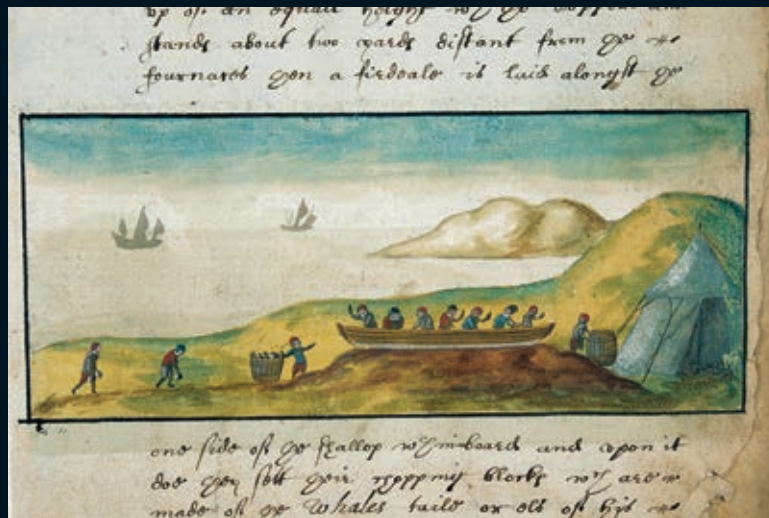 up of an equall height wth ye Copper and
stands about two yards distant from ye
fournaces then a firdeale is laid alongst ye
one side of ye shallop wthin board and upon it
doe they sett their chopping blocks wch are
made of ye Whales taile or els of his